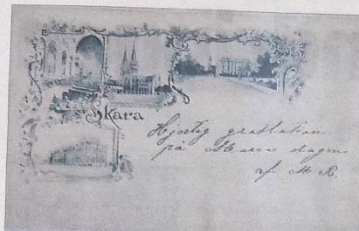 Skara
Hjertlig gratlation
på Stora dagen
af M R